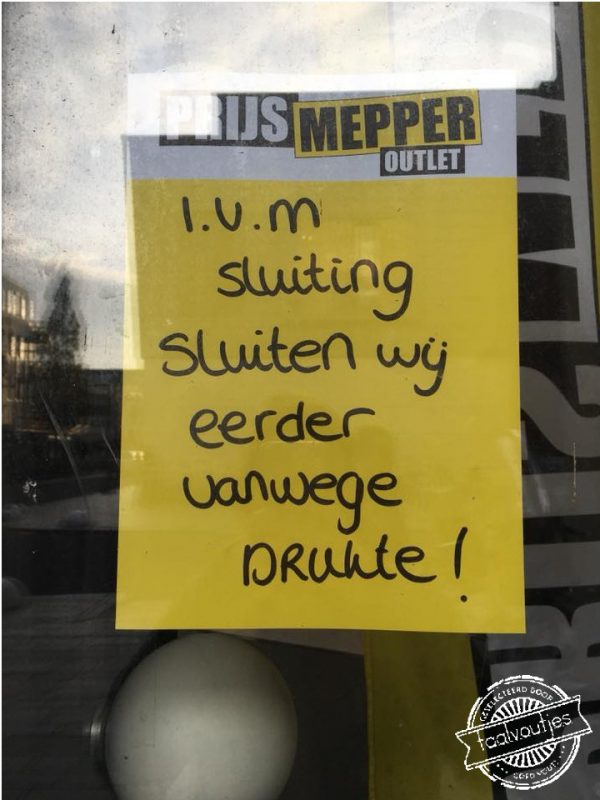 PRIJS MEPPER
OUTLET
I.V.M
sluiting
sluiten wij
eerder
vanwege
DRUKte!
GESELECTEERD DOOR
taalvoutjes
GOED VOUT!